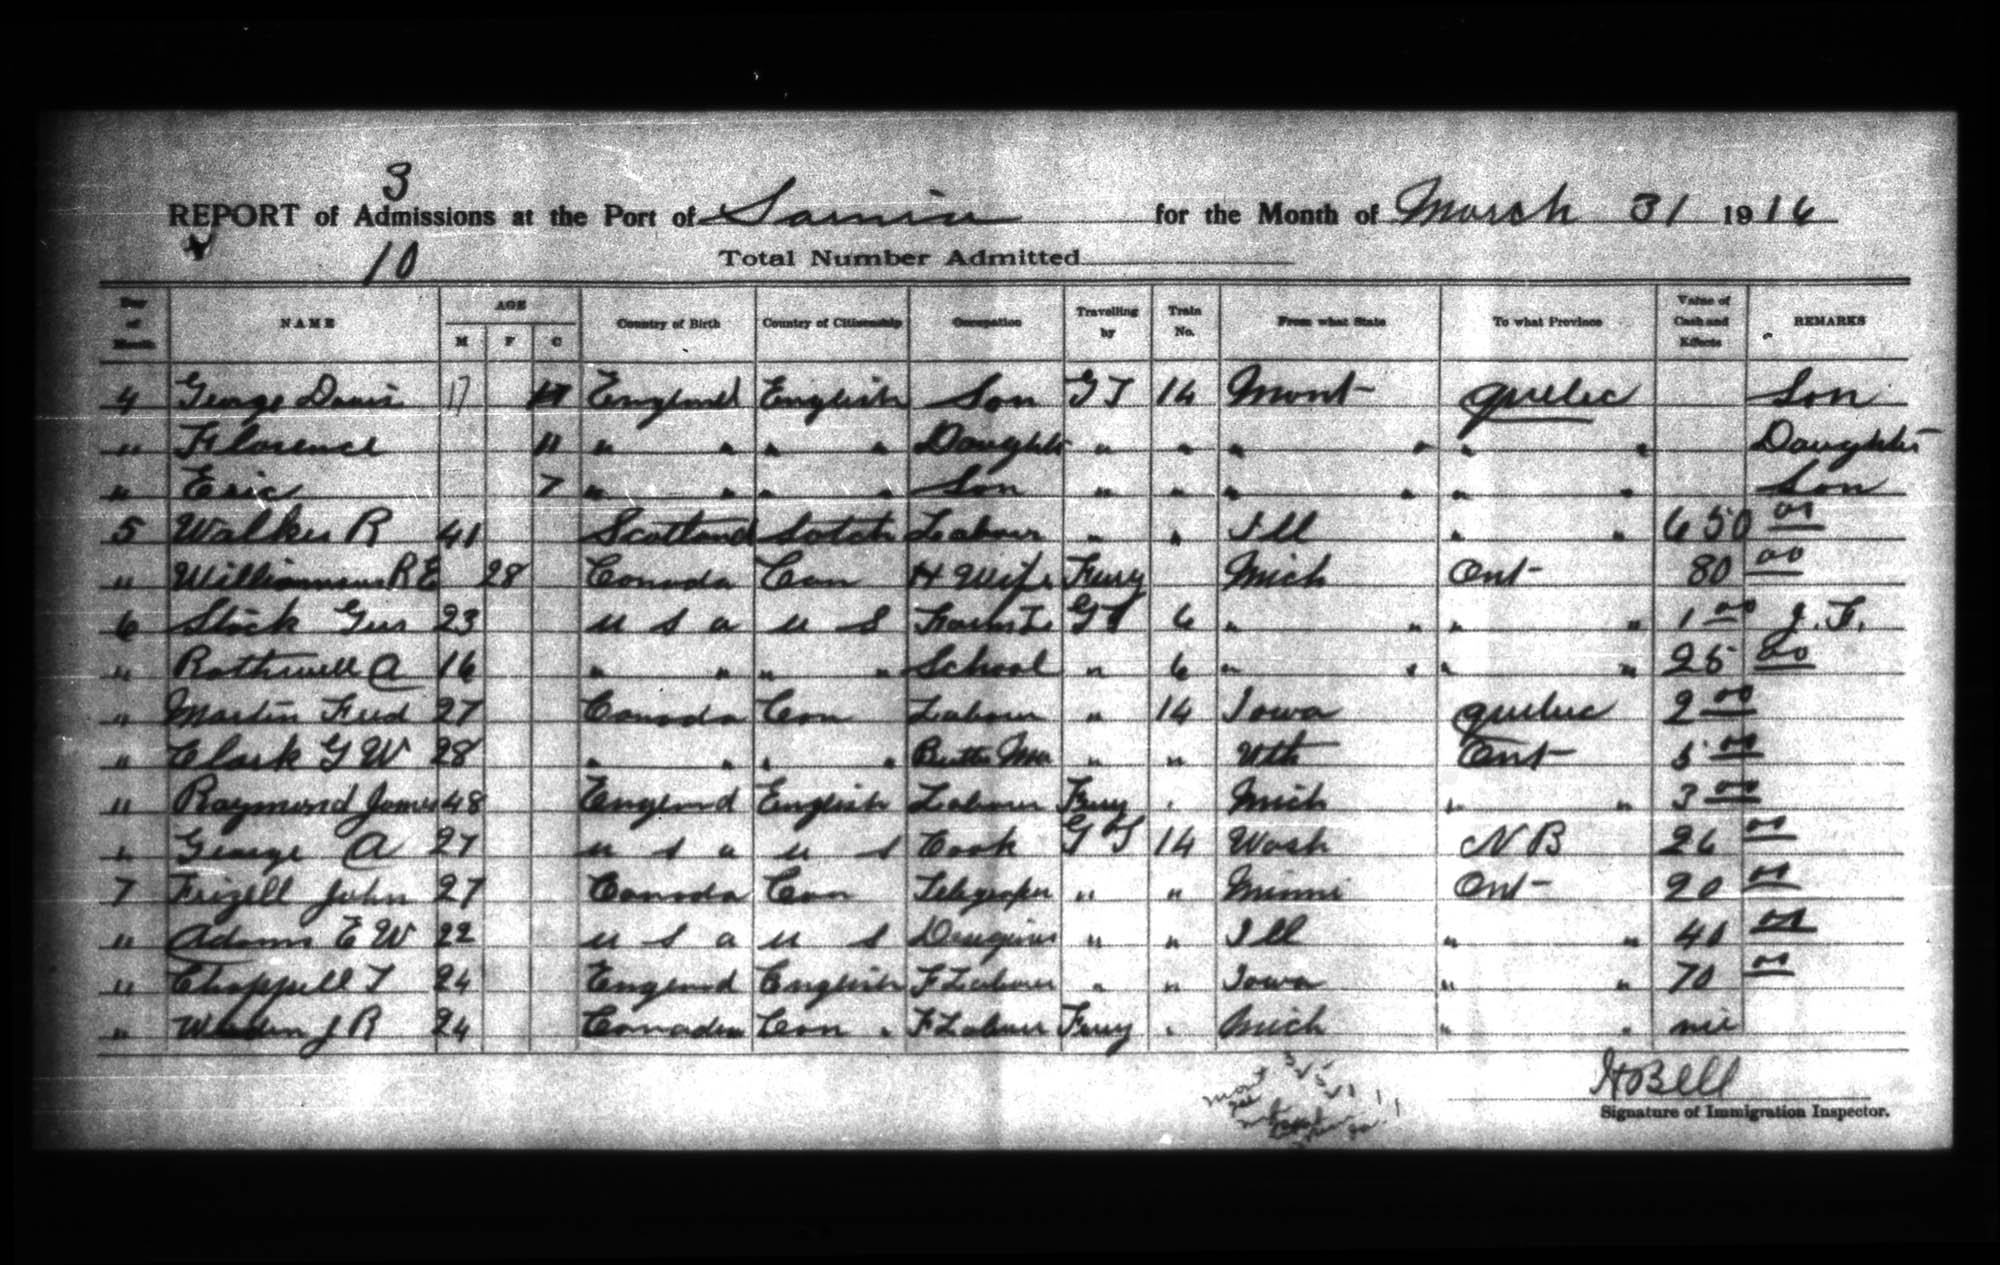 3
REPORT of Admissions at the Port of Sarnia for the Month of March 31 1916
10
Total Number Admitted
Day of Month NAME AGE M F C Country of Birth Country of Citizenship Occupation Travelling by Train No. From what State To what Province Value of Cash and Effects REMARKS
4 George Davis 17 17 England English Son G T 14 Mont Quebec Son
" Florence 11 " " " " Daughter " " " " " " Daughter
" Eric 7 " " " " Son " " " " " " Son
5 Walker R 41 Scotland Scotch Labour " " Ill " " 650 00
" Williamson R E 28 Canada Can H Wife Ferry Mich Ont 80 00
6 Stock Gus 23 U S A U S Farm L G T 6 " " " " 1 00 J. F.
" Rothwell A 16 " " " " School " 6 " " " " 25 00
" Martin Fred 27 Canada Can Labour " 14 Iowa Quebec 2 00
" Clark G W 28 " " " " Butter Ma " " Uth Ont 5 00
" Raymond James 48 England English Labour Ferry " Mich " " 3 00
" George A 27 U S A U S Cook G T 14 Wash N B 26 00
7 Frizell John 27 Canada Can Telegrapher " " Minni Ont 20 00
" Adams E W 22 U S A U S " " Ill " " 40 00
" Chappell T 24 England English F Labour " " Iowa " " 70 00
" J R 24 Canadian Can " F Labour Ferry " Mich " " nil
H Bell
Signature of Immigration Inspector.